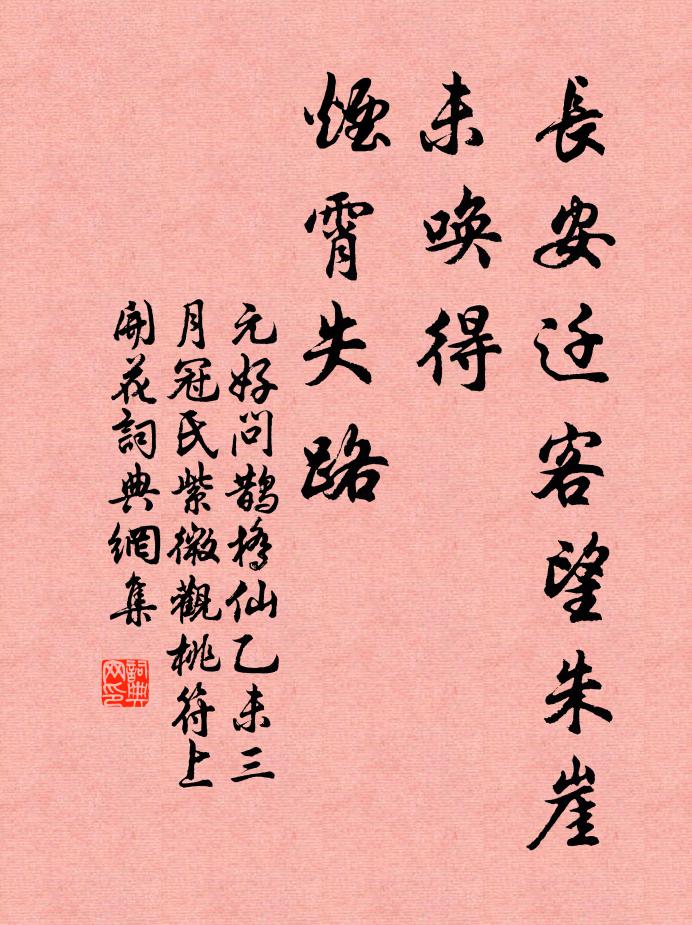 長安迁客望朱崖
未唤得
煙霄失路
元好问鹊桥仙乙未三
月冠氏紫微觀桃符上
開花詞典網集
詞典網印